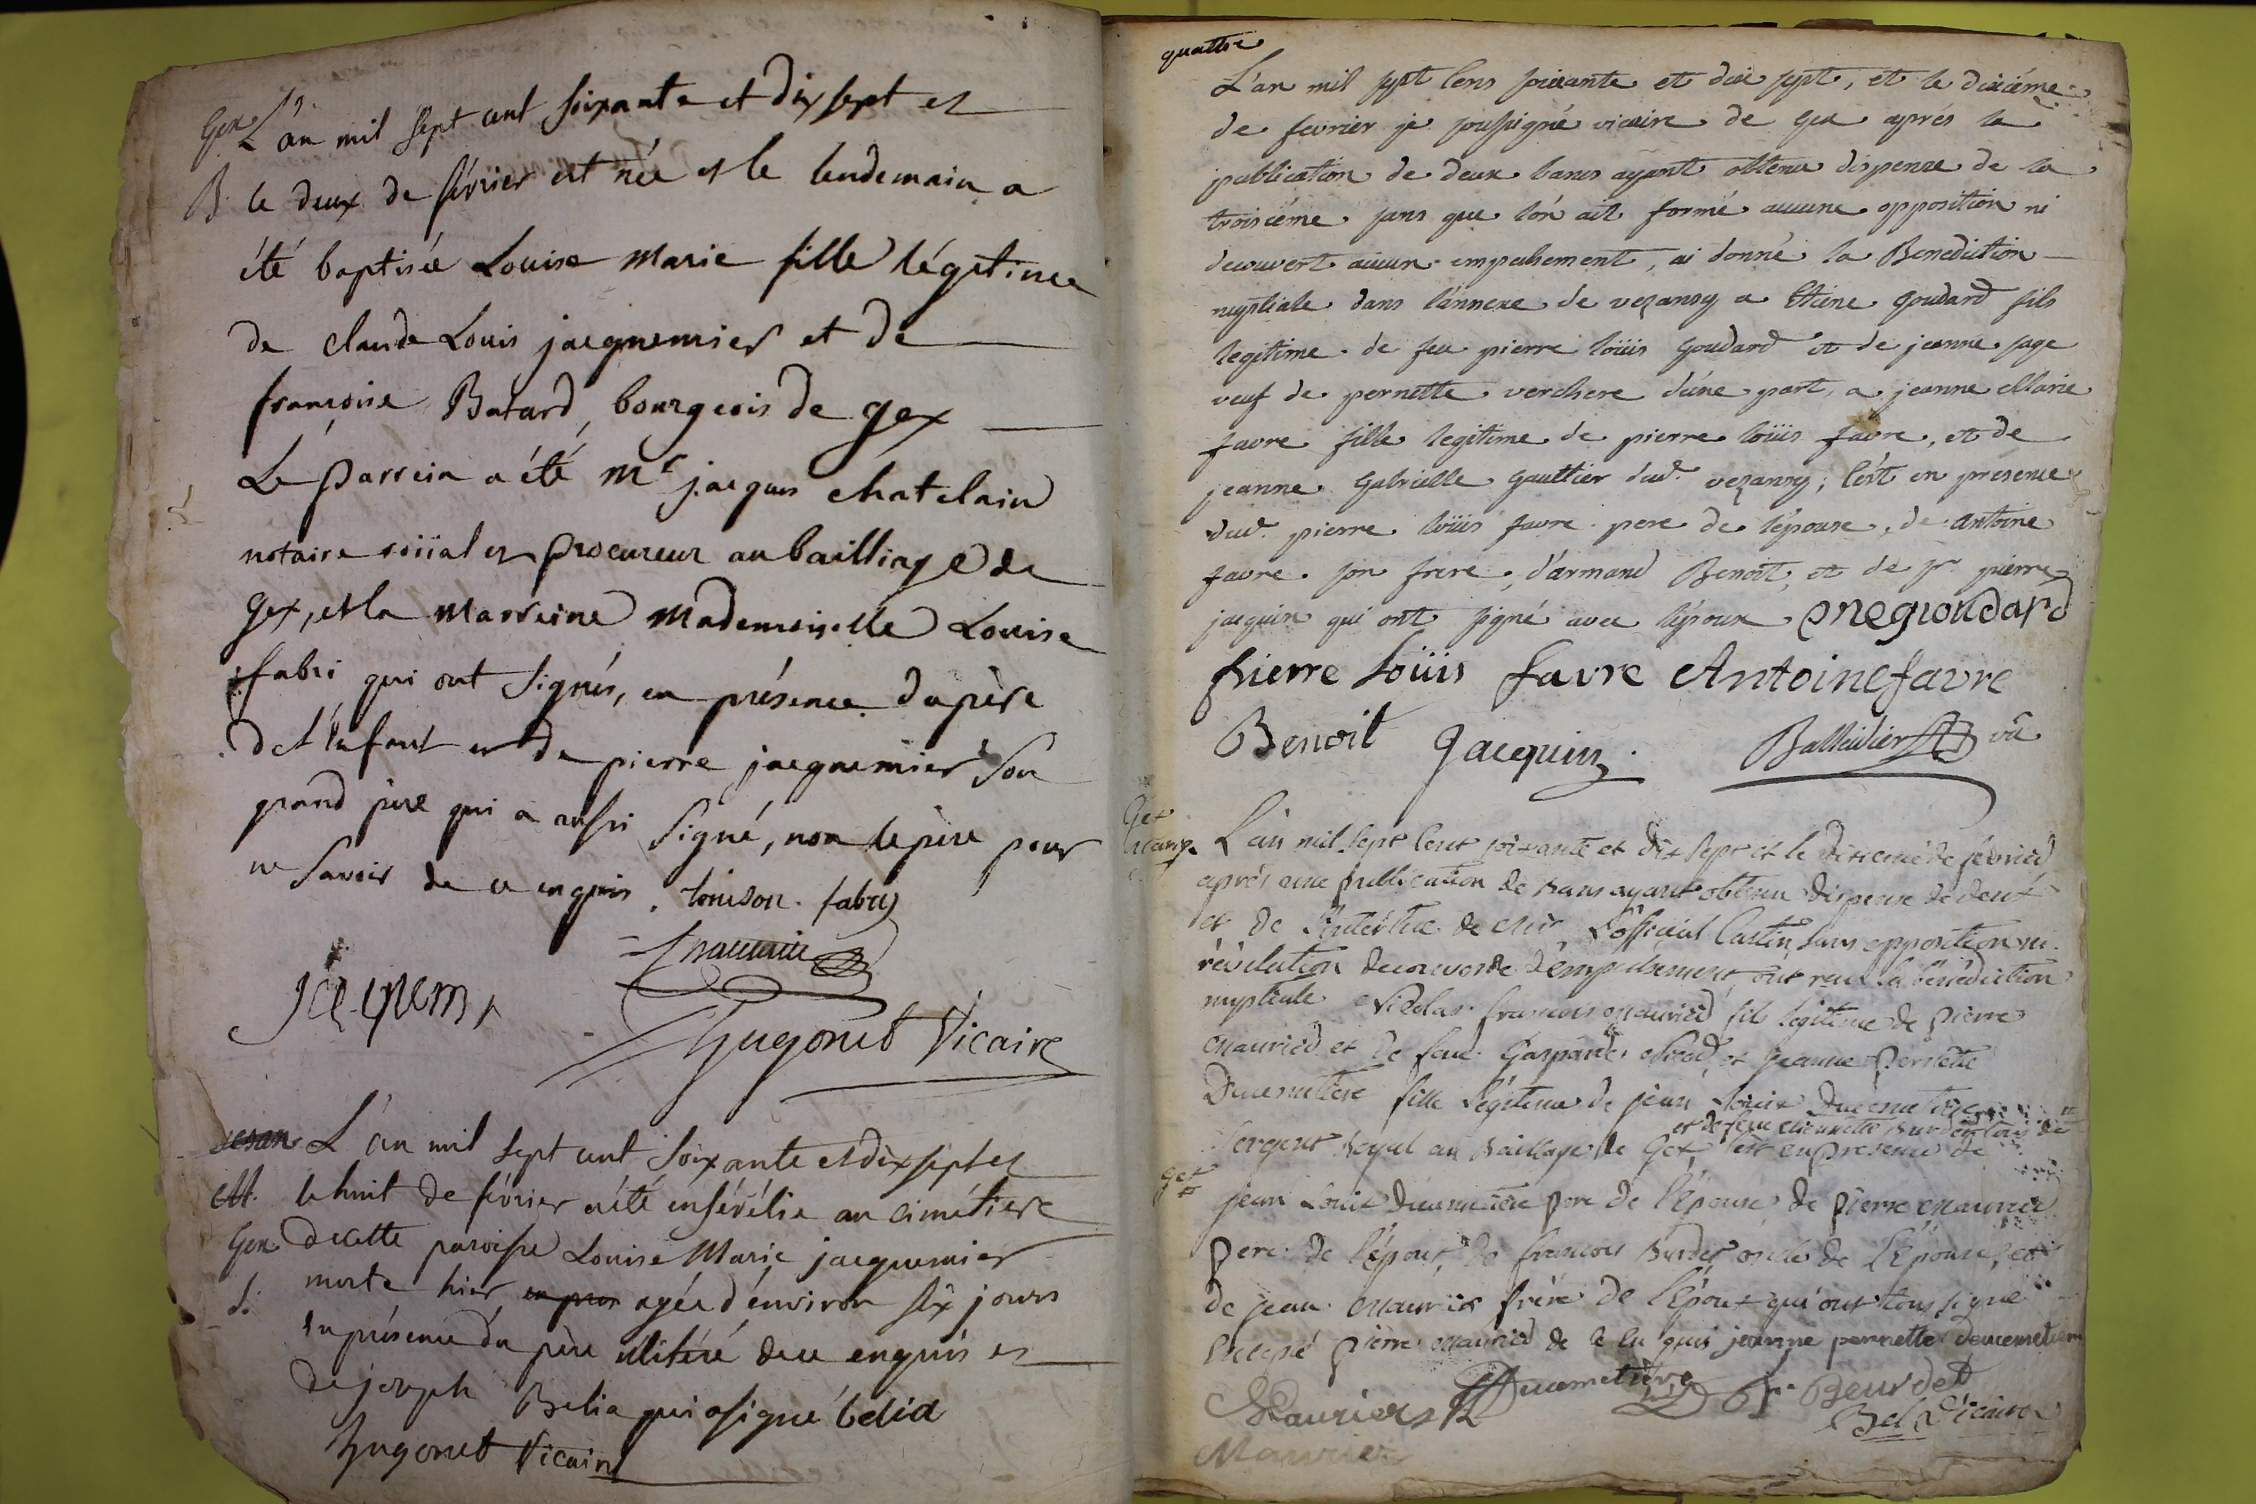 Gex L'an mil sept cent soixante et dix sept et
B. le deux de février est née et le lendemain a
été baptisée Louise Marie fille légitime
de claude Louis jacquemier et de
françoise Batard, bourgeois de gex
Le Parrein a été Mr jacques chatelain
notaire roiial et procureur au bailliage de
Gex, et la Marreine Mademoiselle Louise
fabri qui ont signés, en présence du père
de l'enfant et de pierre jacquemier son
grand père qui a aussi signé, non le père pour
ne savoir de ce enquis. fabry
jacquem
hugonet Vicaire
L'an mil sept cent soixante et dix sept et
M. le huit de février a été ensévélie au cimétiere
Gex decette paroisse Louise Marie jacquemier
S. morte hier agée d'environ six jours
en présence du père illitéré de ce enquis et
de joseph Belia qui a signé belia
hugonet Vicaire
quattre
L'an mil sept cens soixante et dix sept, et le dixiéme
de fevrier je soussigné vicaire de Gex aprés la
publication de deux bans ayant obtenu dispense de la
troisiéme sans que l'on ait formé aucune opposition ni
decouvert aucun empechement, ai donné la Benediction
nuptiale dans l'annexe de vezancy a Etiene Goudard fils
legitime de feu pierre loüis Goudard et de jeanne sage
veuf de pernette verchere d'une part, a jeanne Marie
favre fille legitime de pierre loüis favre, et de
jeanne Gabrielle Gaultier dud. vezancy; c'est en presence
dud. pierre loüis favre pere de l'épouse, de antoine
favre son frere, d'armand Benoit, et de sr pierre
jacquin qui ont signé avec l'époux goudard
pierre Loüis favre Antoine favre
Benoit Jacquin vic
Gex L'an mil sept cent soixante et dix sept et le dixieme de février
aprés une publication de bans ayant obtenu dispense de deux
et de de L'official Castin sans opposition ni
révélation decouverte d'empechement, ont reçu la bénédiction
nuptiale Nicolas françois Maurier fils légitime de pierre
Maurier et de feue Gasparde et jeanne Pernette
Ducimetiere fille légitime de jean Louis Ducimetiere
et de feue
sergent Royal au Bailliage de Gex, c'est en présence de
Gex jean Louis Ducimetiere pere de l'épouse de pierre Maurier
pere de l'époux, de francois Burdet oncle de l'Épouse, et
de jean Maurier frére de l'Époux qui ont tous signé
Excepé pierre Maurier de ce en quis jeanne pernette ducemetiere
Mauriers Ducemetiere fs Beurdet
Bel Vicaire
Maurier